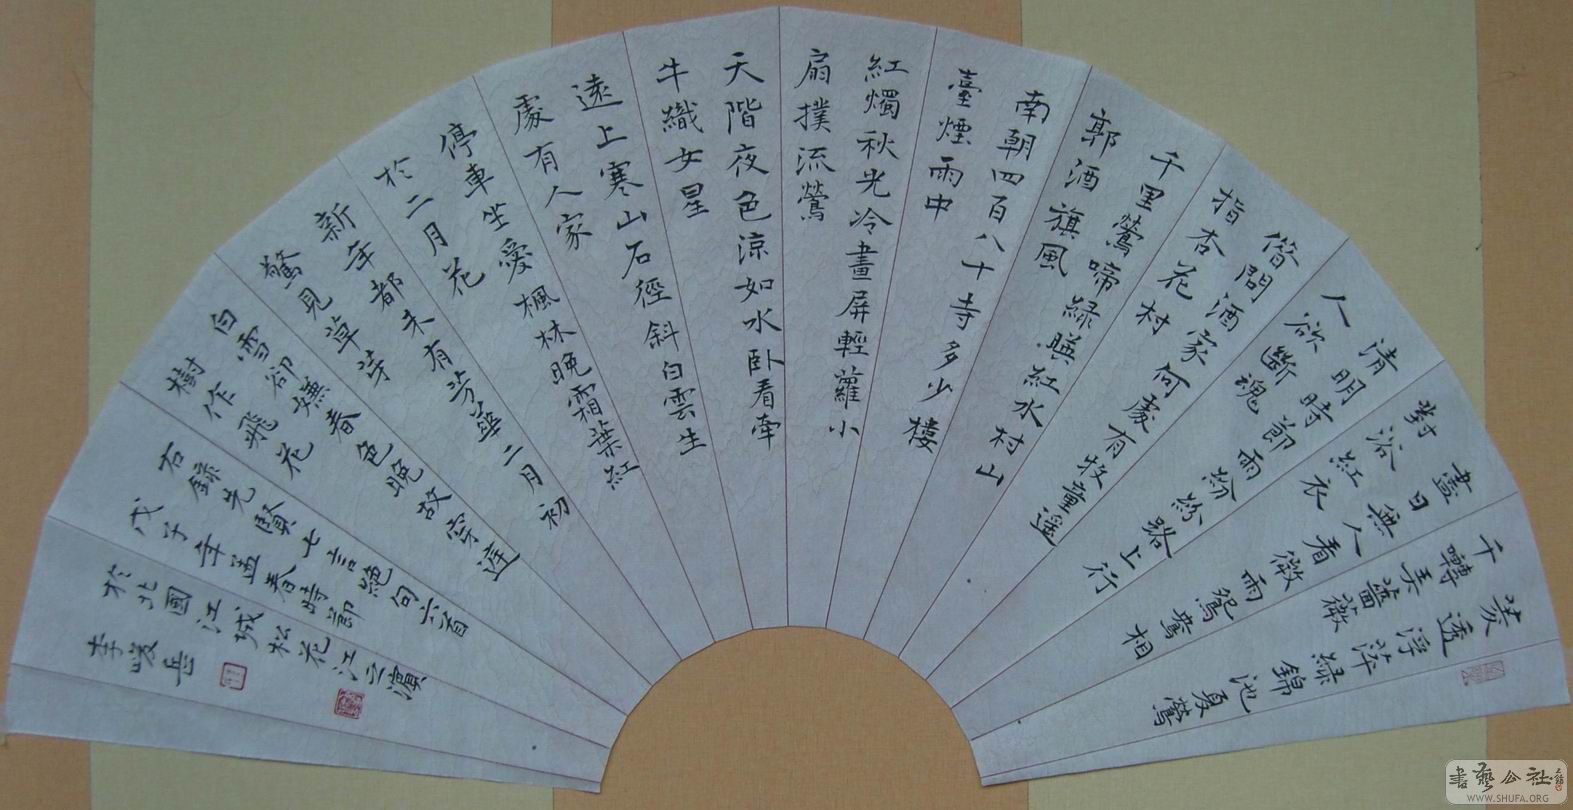 菱透浮萍綠錦池夏鶯
千囀弄薔薇
盡日無人看微雨鴛鴦相
對浴紅衣
清明時節雨紛紛路上行
人欲斷魂
借問酒家何處有牧童遙
指杏花村
千里鶯啼綠暎紅水村山
郭酒旗風
南朝四百八十寺多少樓
臺煙雨中
紅燭秋光冷畫屏輕蘿小
扇撲流鶯
天階夜色涼如水卧看牽
牛織女星
遠上寒山石徑斜白雲生
處有人家
停車坐愛楓林晚霜葉紅
於二月花
新年都未有芳華二月初
驚見草芽
白雪卻嫌春色晚故穿庭
樹作飛花
右錄先賢七言絕句六首
戊子年孟春時節
於北國江城松花江之濱
李峻岳
書藝公社
WWW.SHUFA.ORG